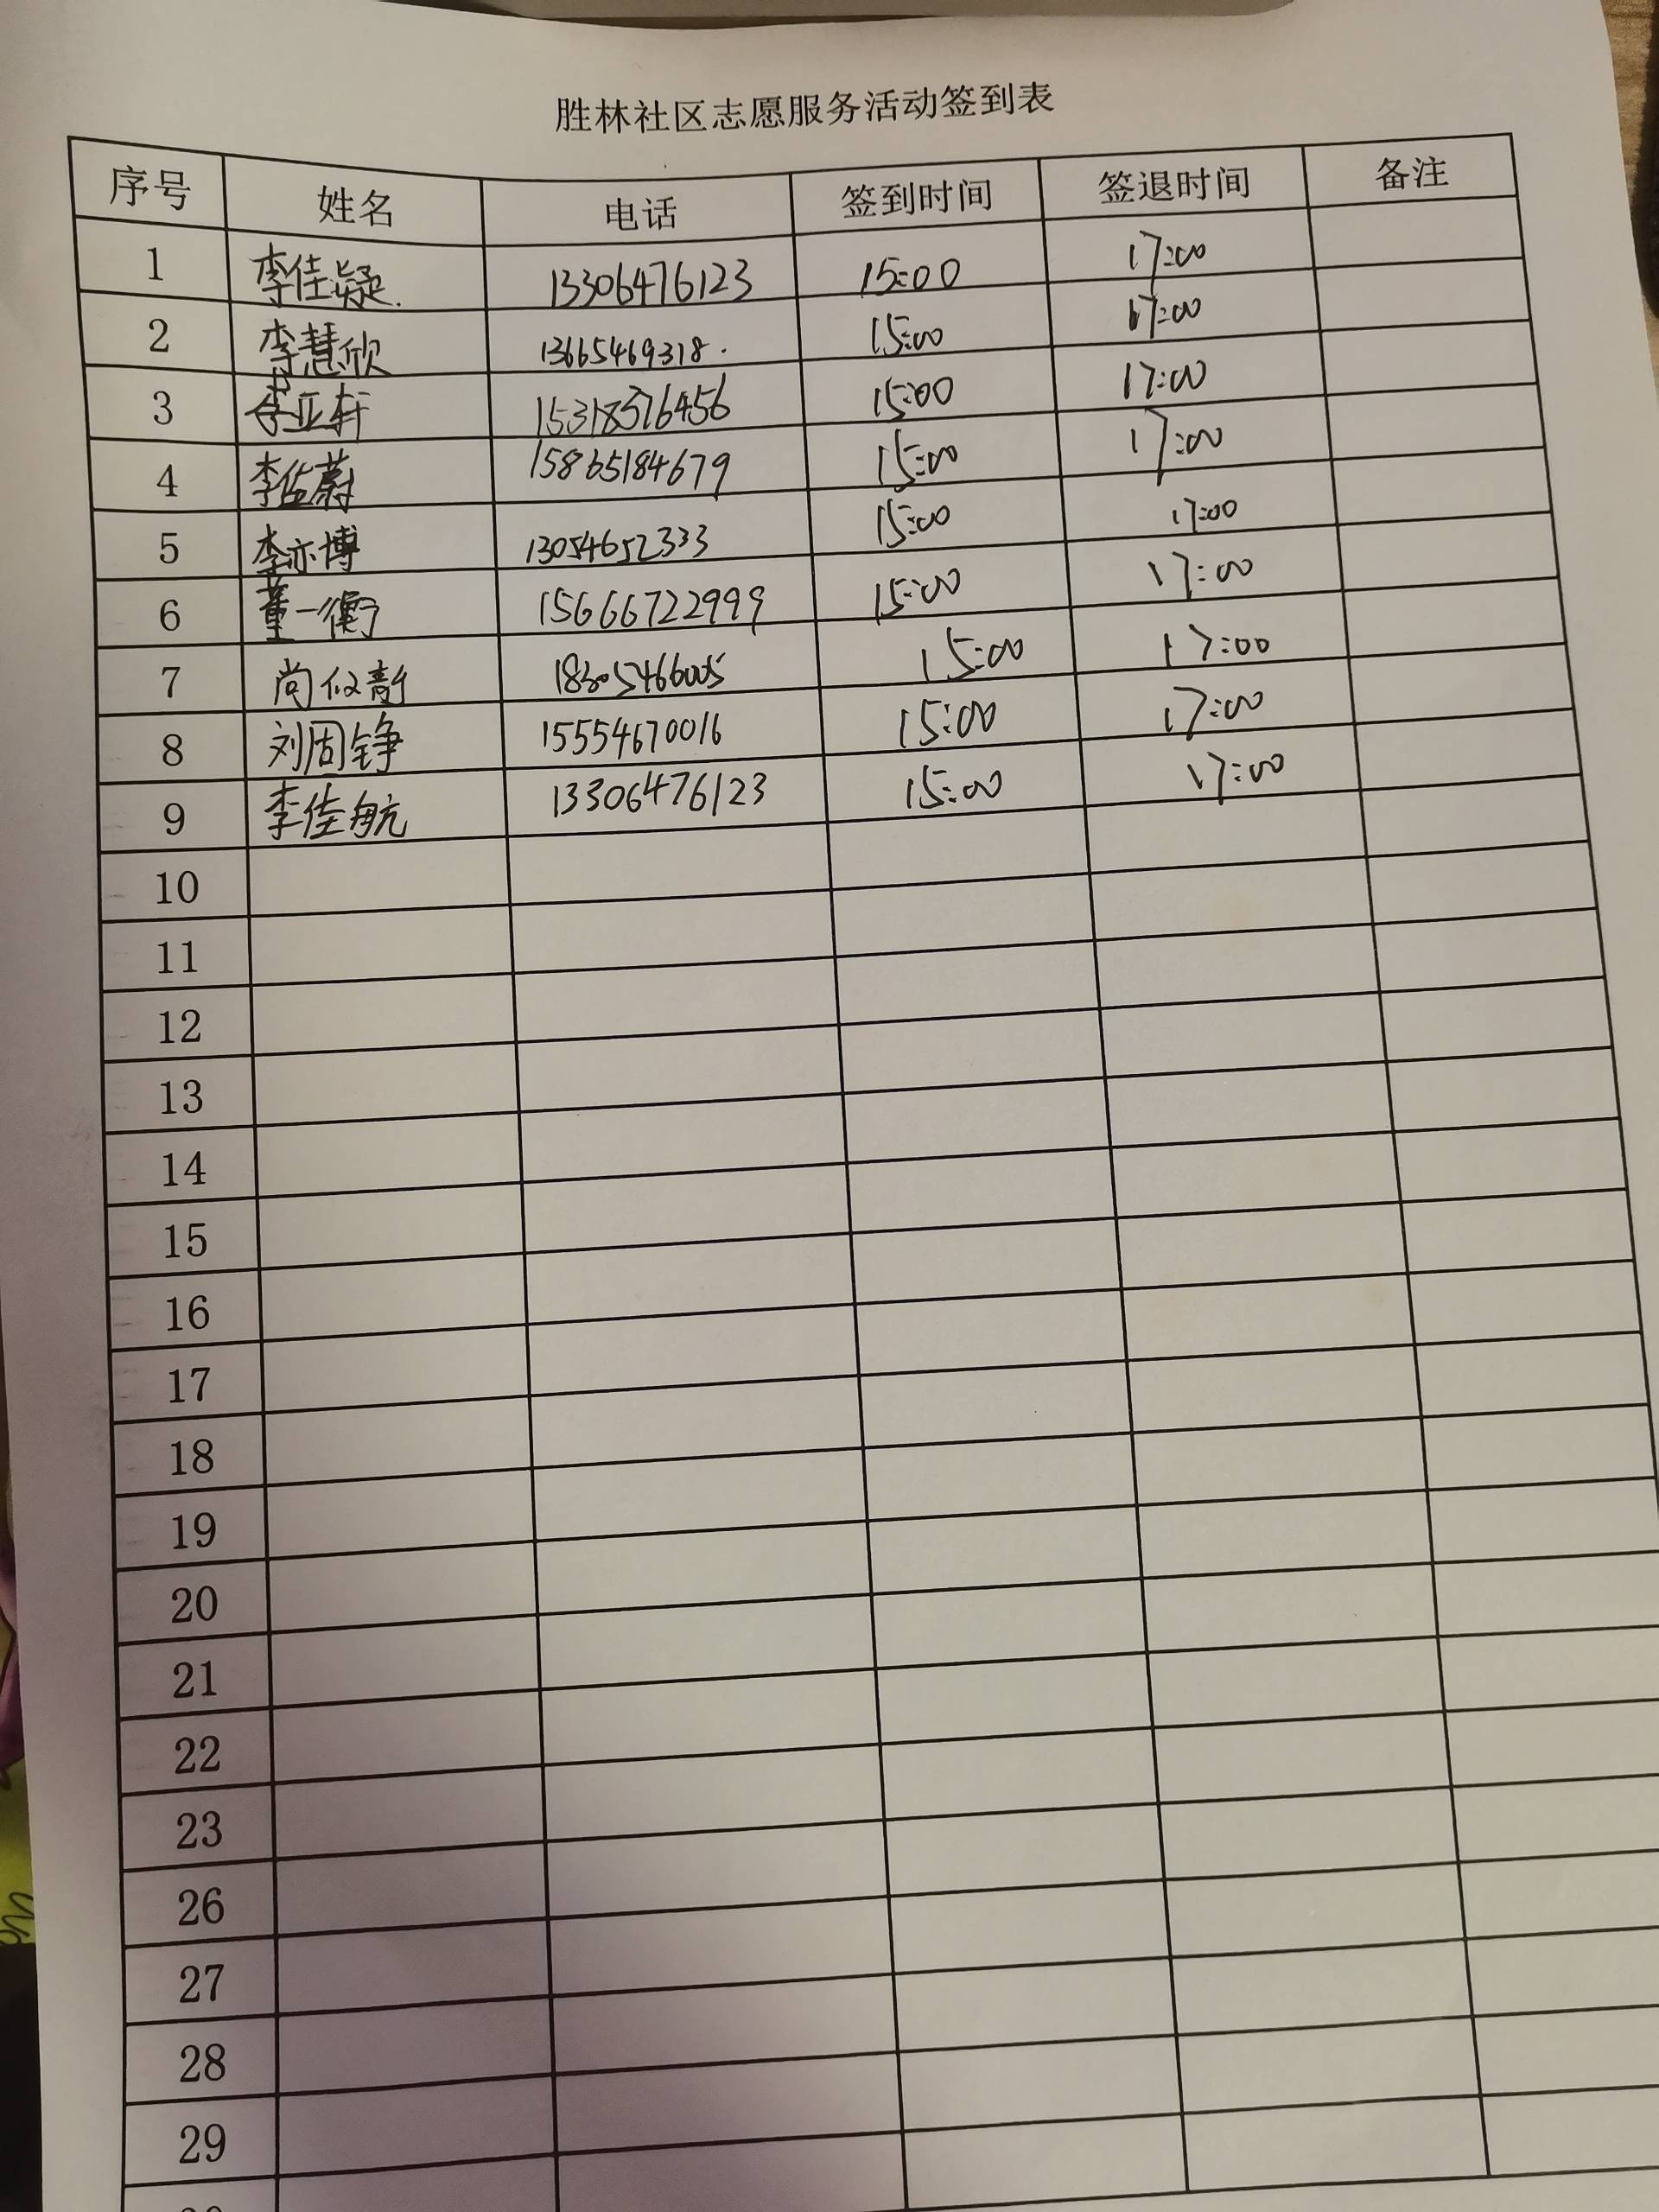 胜林社区志愿服务活动签到表
序号 姓名 电话 签到时间 签退时间 备注
1 李佳凝 13306476123 15:00 17:00
2 李慧欣 13665469318 15:00 17:00
3 李亚轩 15318376456 15:00 17:00
4 李佑蔚 15865184679 15:00 17:00
5 李亦博 13054652333 15:00 17:00
6 董一衡 15666722999 15:00 17:00
7 尚 18305466005 15:00 17:00
8 刘周铮 15554670016 15:00 17:00
9 李佳航 13306476123 15:00 17:00
10
11
12
13
14
15
16
17
18
19
20
21
22
23
26
27
28
29